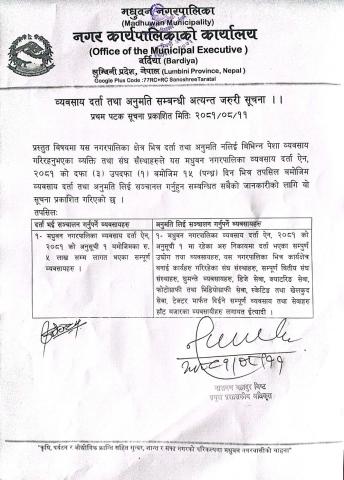 मधुवन नगरपालिका
(Madhuwan Municipality)
नगर कार्यपालिकाको कार्यालय
(Office of the Municipal Executive )
बर्दिया (Bardiya)
लुम्बिनी प्रदेश, नेपाल (Lumbini Province, Nepal )
Google Plus Code :77RC+RC SanoshreeTaratal
व्यवसाय दर्ता तथा अनुमति सम्बन्धी अत्यन्त जरुरी सूचना ।।
प्रथम पटक सूचना प्रकाशित मितिः २०८१/०८/११
प्रस्तुत विषयमा यस नगरपालिका क्षेत्र भित्र दर्ता तथा अनुमति नलिई विभिन्न पेशा व्यवसाय
गरिरहनुभएका व्यक्ति तथा संघ संस्थाहरुले यस मधुवन नगरपालिका व्यवसाय दर्ता ऐन,
२०८१ को दफा (३) उपदफा (१) बमोजिम १५ (पन्ध्र) दिन भित्र तपसिल बमोजिम
व्यवसाय दर्ता तथा अनुमति लिई सञ्चालन गर्नुहुन सम्बन्धित सबैको जानकारीको लागि यो
सूचना प्रकाशित गरिएको छ ।
तपसिलः
दर्ता भई सञ्चालन गर्नुपर्ने व्यवसायहरु
१- मधुवन नगरपालिका व्यवसाय दर्ता ऐन,
२०८१ को अनुसूची १ बमोजिमका रु.
५ लाख सम्म लागत भएका सम्पूर्ण
व्यवसायहरु ।
अनुमति लिई सञ्चालन गर्नुपर्ने व्यवसायहरु
१- मधुवन नगरपालिका व्यवसाय दर्ता ऐन, २०८१ को
अनुसूची १ मा रहेका अरु निकायमा दर्ता भएका सम्पूर्ण
उद्योग तथा व्यवसायहरु, यस नगरपालिका भित्र कार्यक्षेत्र
बनाई कार्य गरिरहेका संघ संस्थाहरु, सम्पूर्ण वित्तीय संघ
संस्थाहरु, घुम्ती व्यवसायहरु, डिजे सेवा, क्याटरिङ सेवा,
फोटोग्राफी तथा भिडियोग्राफी सेवा, स्केटिङ तथा खेलकुद
सेवा, टेक्टर मार्फत दिईने सम्पूर्ण व्यवसाय तथा सेवाहरु
हाँट बजारका व्यवसायीहरु लगायत ईत्यादी ।
२०८१/०८/११
नारायण बहादुर विष्ट
प्रमुख प्रशासकीय अधिकृत
"कृषि, पर्यटन र औद्योगिक क्रान्ति सहित सुन्दर, शान्त र सफा नगरको परिकल्पना मधुवन नगरवासीको चाहना"